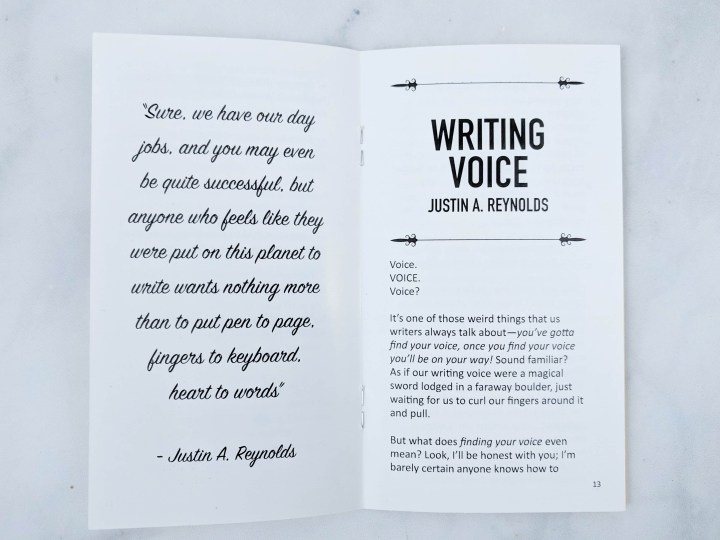 "Sure, we have our day
jobs, and you may even
be quite successful, but
anyone who feels like they
were put on this planet to
write wants nothing more
than to put pen to page,
fingers to keyboard,
heart to words"
- Justin A. Reynolds
WRITING
VOICE
JUSTIN A. REYNOLDS
Voice.
VOICE.
Voice?
It's one of those weird things that us
writers always talk about—you've gotta
find your voice, once you find your voice
you'll be on your way! Sound familiar?
As if our writing voice were a magical
sword lodged in a faraway boulder, just
waiting for us to curl our fingers around it
and pull.
But what does finding your voice even
mean? Look, I'll be honest with you; I'm
barely certain anyone knows how to
13